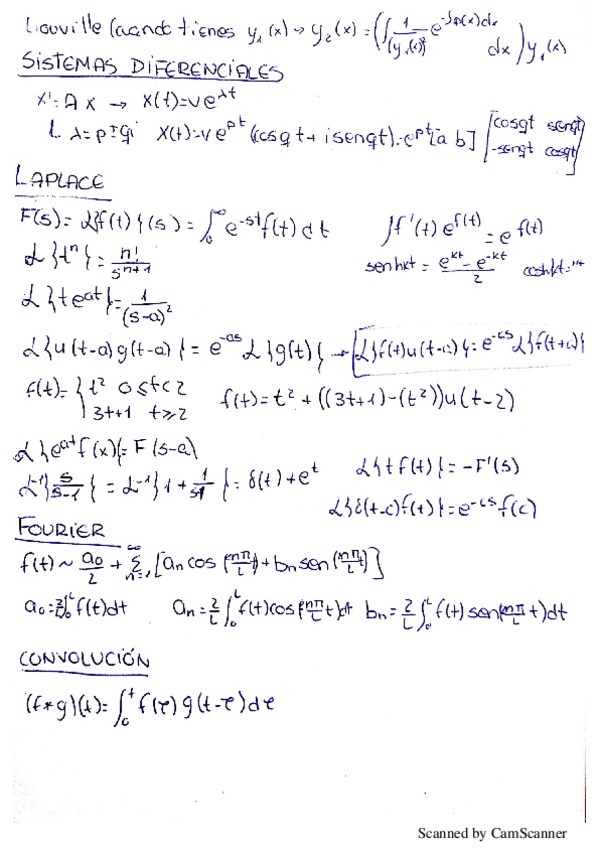 Liouville (cuando tienes y₁(x) → y₂(x) = (∫ 1/(y₁(x))² e^(-∫p(x)dx) dx) y₁(x)
SISTEMAS DIFERENCIALES
x' = A x → x(t) = v e^(λt)
L λ = p ± qi x(t) = v e^(pt) (cos qt + i sen qt) = e^(pt) [a b] [cosqt senqt / -senqt cosqt]
LAPLACE
F(s) = L{f(t)}(s) = ∫₀^∞ e^(-st) f(t) dt ∫f'(t) e^(f(t)) = e^(f(t))
L{tⁿ} = n!/s^(n+1) senhkt = (e^(kt) - e^(-kt))/2 coshkt = "+
L{t e^(at)} = 1/(s-a)²
L{u(t-a) g(t-a)} = e^(-as) L{g(t)} → L{f(t)u(t-c)} = e^(-cs) L{f(t+c)}
f(t) = { t² 0≤t<2 f(t) = t² + ((3t+1)-(t²))u(t-2)
3t+1 t≥2
L{e^(at) f(x)} = F(s-a)
L⁻¹{s/(s-1)} = L⁻¹{1 + 1/(s-1)} = δ(t) + e^t L{t f(t)} = -F'(s)
L{δ(t-c)f(t)} = e^(-cs) f(c)
FOURIER
f(t) ~ a₀/2 + Σ_(n=1)^∞ [aₙ cos(nπ/L t) + bₙ sen(nπ/L t)]
a₀ = 2/L ∫₀^L f(t)dt aₙ = 2/L ∫₀^L f(t) cos(nπ/L t)dt bₙ = 2/L ∫₀^L f(t) sen(nπ/L t)dt
CONVOLUCIÓN
(f*g)(t) = ∫₀^t f(τ) g(t-τ) dτ
Scanned by CamScanner